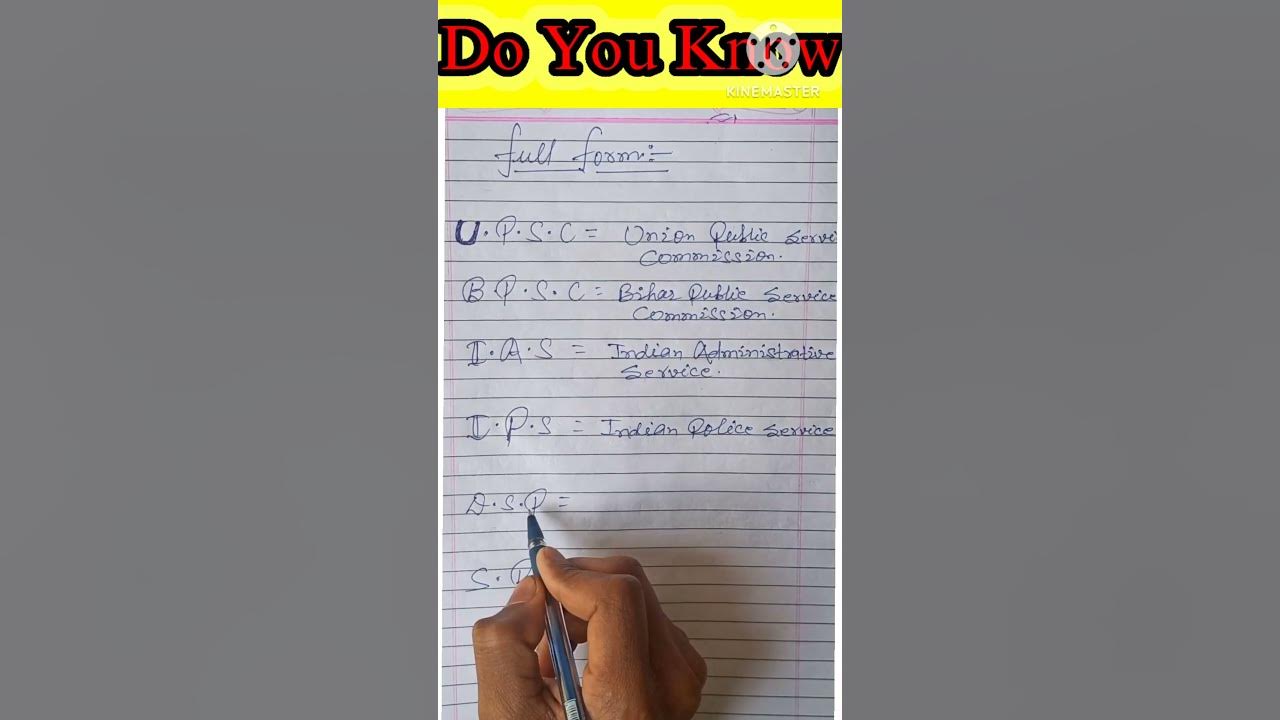 Do You Know
KINEMASTER
full form:-
U.P.S.C = Union Public Servi
Commission.
B.P.S.C = Bihar Public Service
Commission.
I.A.S = Indian Administrative
Service.
I.P.S = Indian Police Service
D.S.P =
S.P